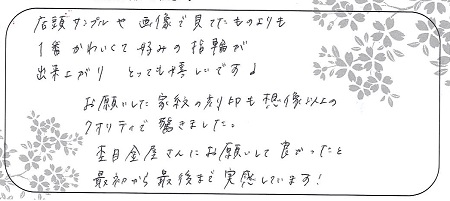 店頭サンプルや画像で見てたものよりも
1番かわいくて好みの指輪が
出来上がり とっても嬉しいです♩
お願いした家紋の刻印も想像以上の
クオリティで驚きました。
杢目金屋さんにお願いして良かったと
最初から最後まで実感しています!